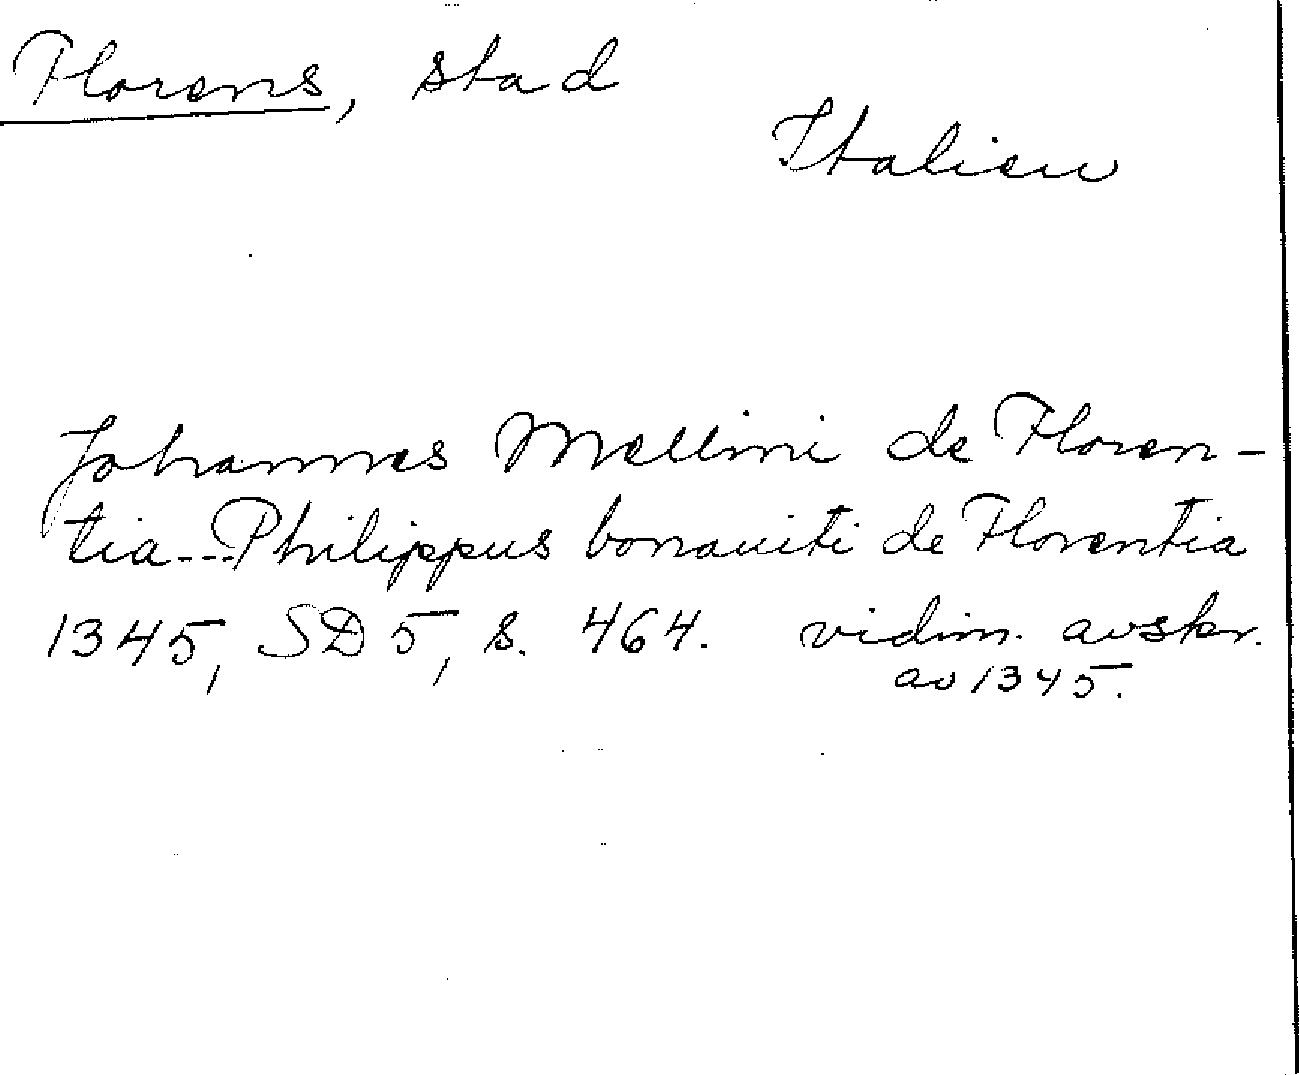 Florens, stad
Italien
Johannes Mellini de Floren-
tia---Philippus bonauiti de Florentia
1345, SD 5, s. 464. vidim. avskr.
av 1345.